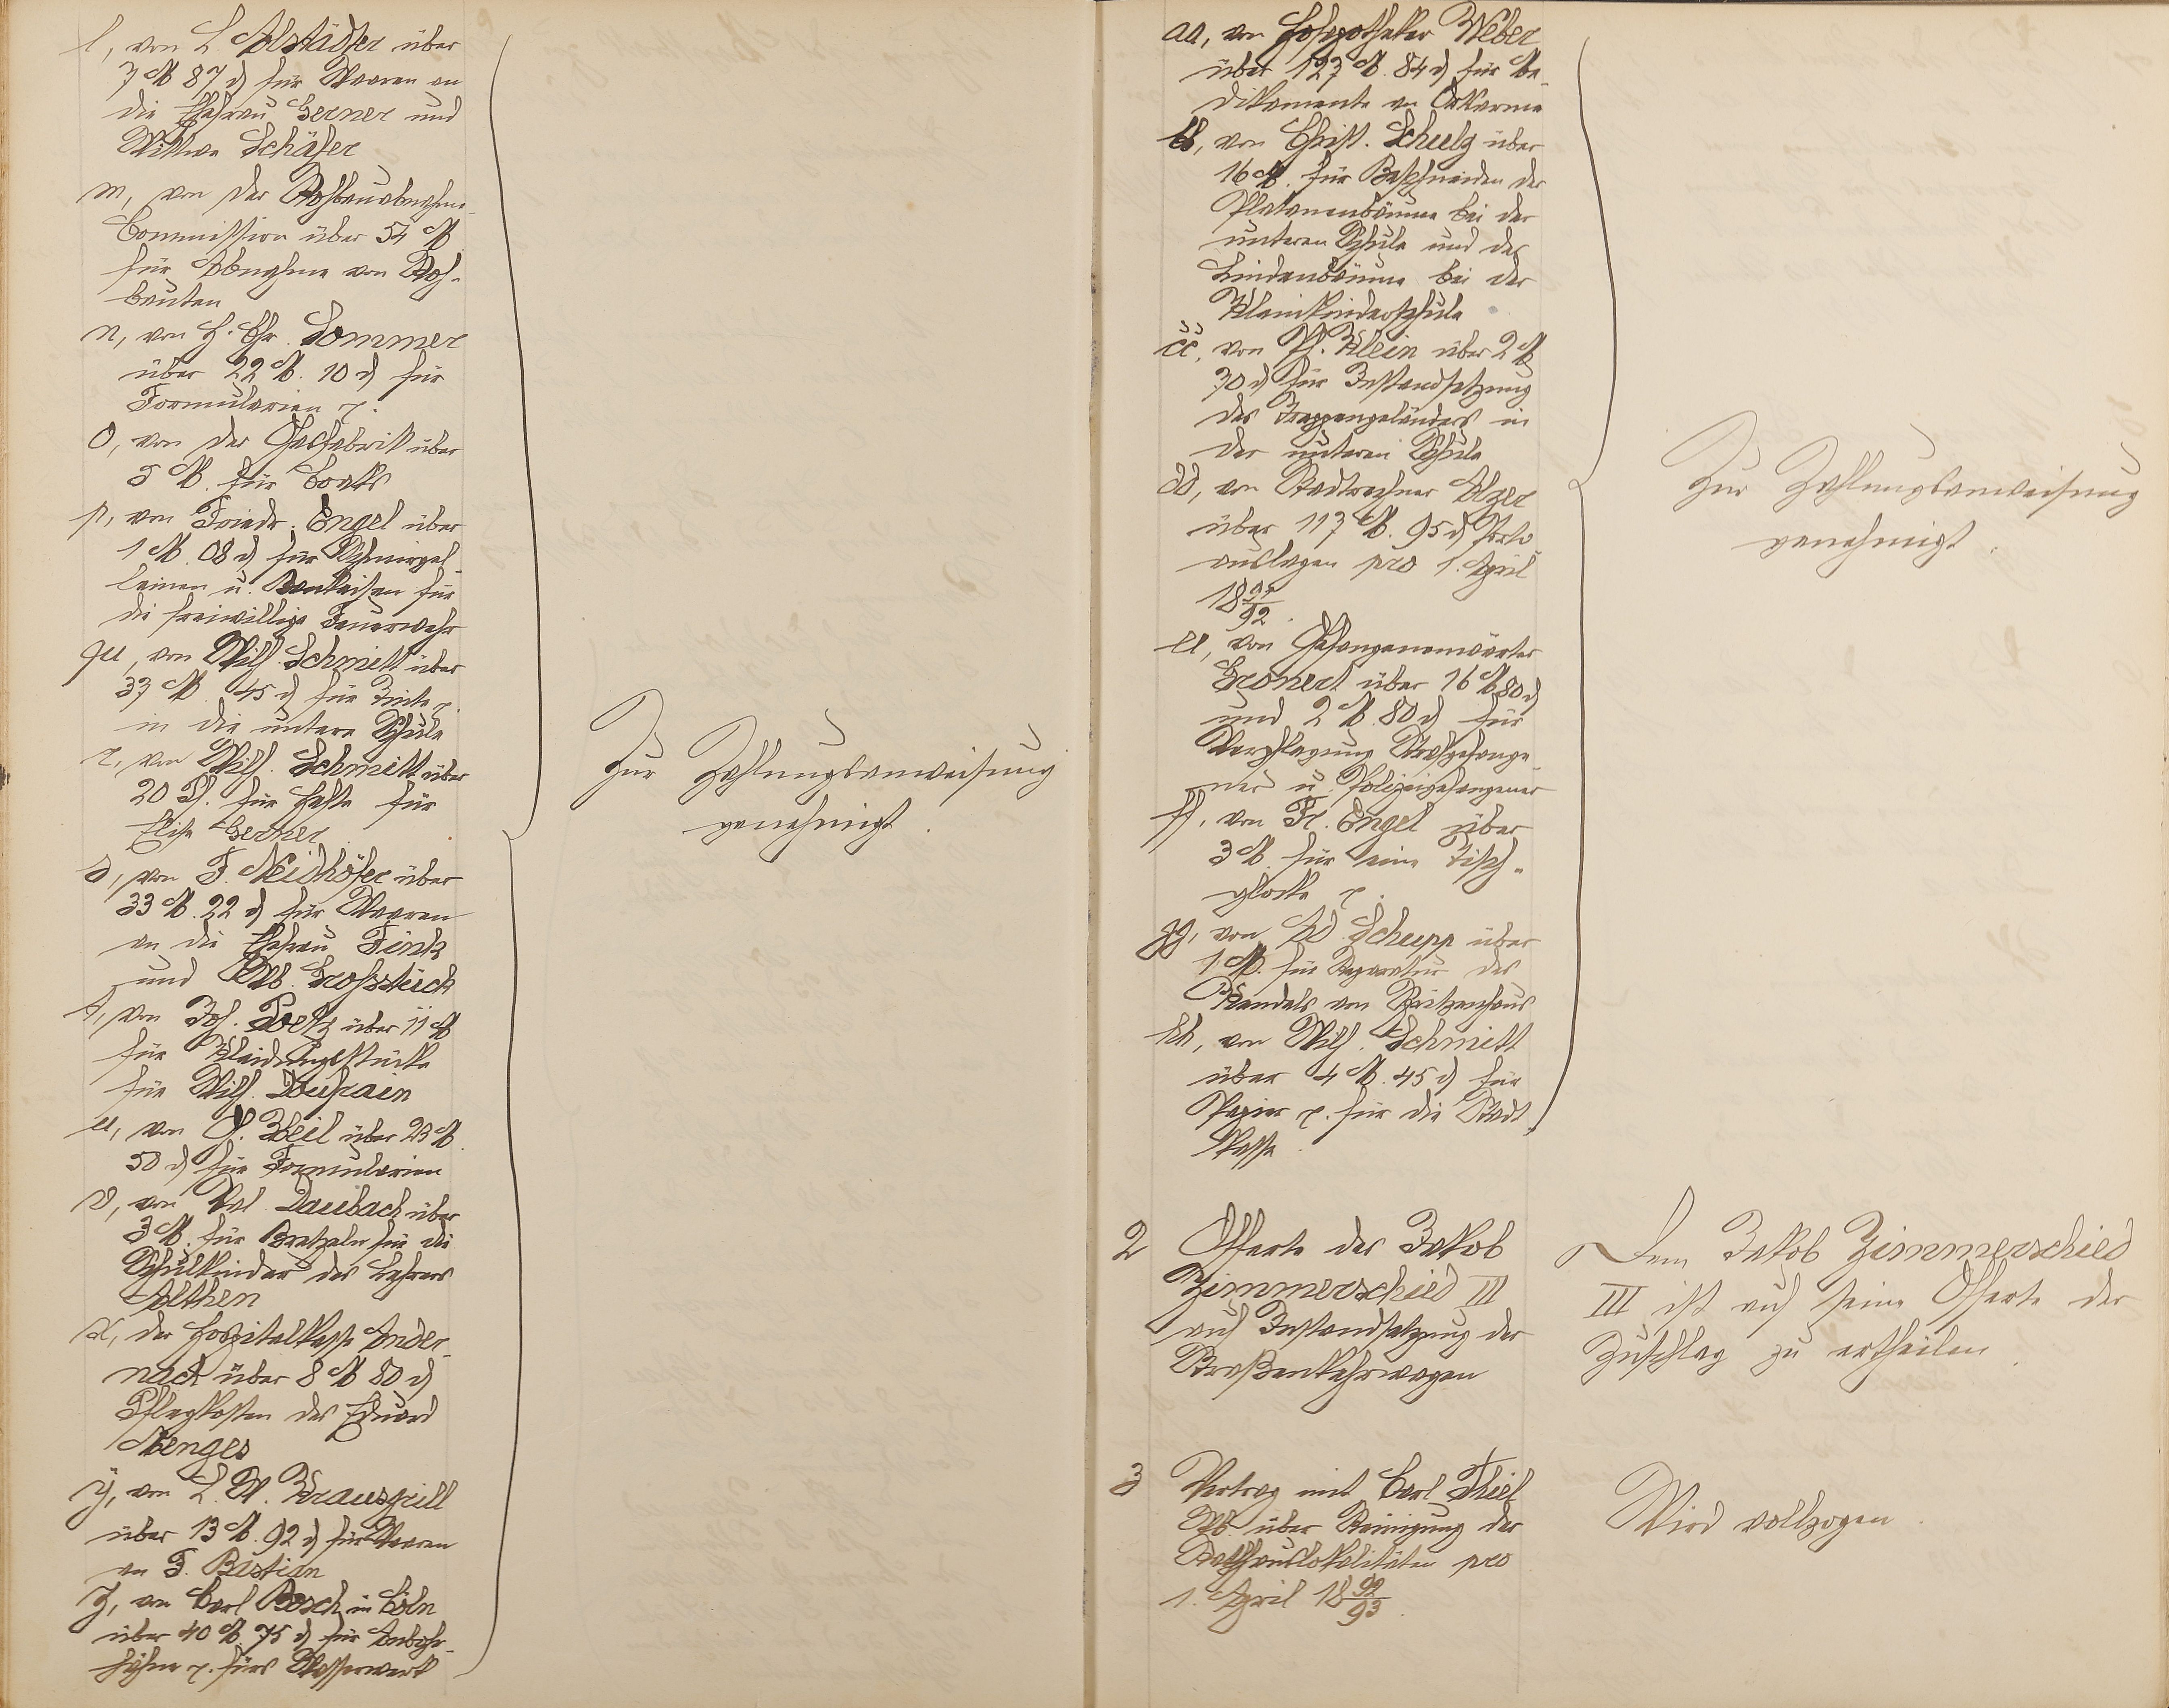 l, von L. Altstädter über
3 M 87 d für Waaren an
die Ehefrau Gerner und
Wittwe Schäfer
m, von der Rohbauabnahme-
Commission über 54 M
für Abnahme von Roh-
bauten
n, von H. Chr. Sommer
über 22 M. 10 d für
Formularien p.
o, von der Gasfabrik über
5 M. für Coaks
p, von Friedr. Engel über
1 M. 08 d für Schmirgel-
leinen u. Bankeisen für
die freiwillige Feuerwehr
qu, von Wilh. Schmitt über
33 M. 45 d für Tinte p.
in die untere Schule
r, von Wilh. Schmitt über
20 Pf. für Hefte für
Elise Gerner
s, von F. Neidhöfer über
33 M. 22 d für Waaren
an die Ehefrau Fink
und Wb. Grohsteick
t, von Joh. Goetz über 11 M
für Kleidungsstücke
für Wilh. Dupain
u, von P. Keil über 23 M.
50 d für Formularien
v, von Val. Daubach über
3 M. für Bretzeln für die
Schulkinder des Lehrers
Althen
x, der Hospitalkasse Ander-
nach über 8 M 80 d
Pflegkosten des Eduard
Menges
y, von L. W. Krausgrill
über 13 M. 92 d für Waaren
an F. Bastian
z, von Carl Bosch in Cöln
über 40 M. 75 d für Anbohr-
hähne p. fürs Wasserwerk
Zur Zahlungsanweisung
genehmigt.
aa, von Hofapotheker Weber
über 127 M. 84 d für Me-
dikamente an Ortsarme
bb, von Christ. Schulz über
16 M. für Beschneiden der
Platanenbäume bei der
unteren Schule und der
Lindenbäume bei der
Kleinkinderschule
cc, von Ph. Klein über 2 M
30 d für Instandsetzung
des Treppengeländers in
der unteren Schule
dd, von Stadtrechner Elzer
über 117 M. 95 d Porto
auslagen pro 1. April
18 91/92.
ee, von Gefangenenwärter
Gronert über 16 M 80 d
und 2 M. 80 d für
Verpflegung Strafgefange-
ner u. Polizeigefangener
ff, von Fr. Engel über
3 M. für eine Tisch-
glocke p.
gg, von Ad. Schupp über
1 M. für Reparatur des
Kandels am Spritzenhaus
hh, von Wilh. Schmitt
über 4 M. 45 d für
Papier p. für die Stadt
kasse.
Zur Zahlungsanweisung
genehmigt.
2 Offerte des Jakob
Zimmerschied III
auf Instandsetzung der
Straßenkehrwagen
Dem Jakob Zimmerschied
III ist auf seine Offerte der
Zuschlag zu ertheilen.
3 Vertrag mit Carl Thiel
Wb. über Reinigung der
Rathhauslokalitäten pro
1. April 18 92/93.
Wird vollzogen.